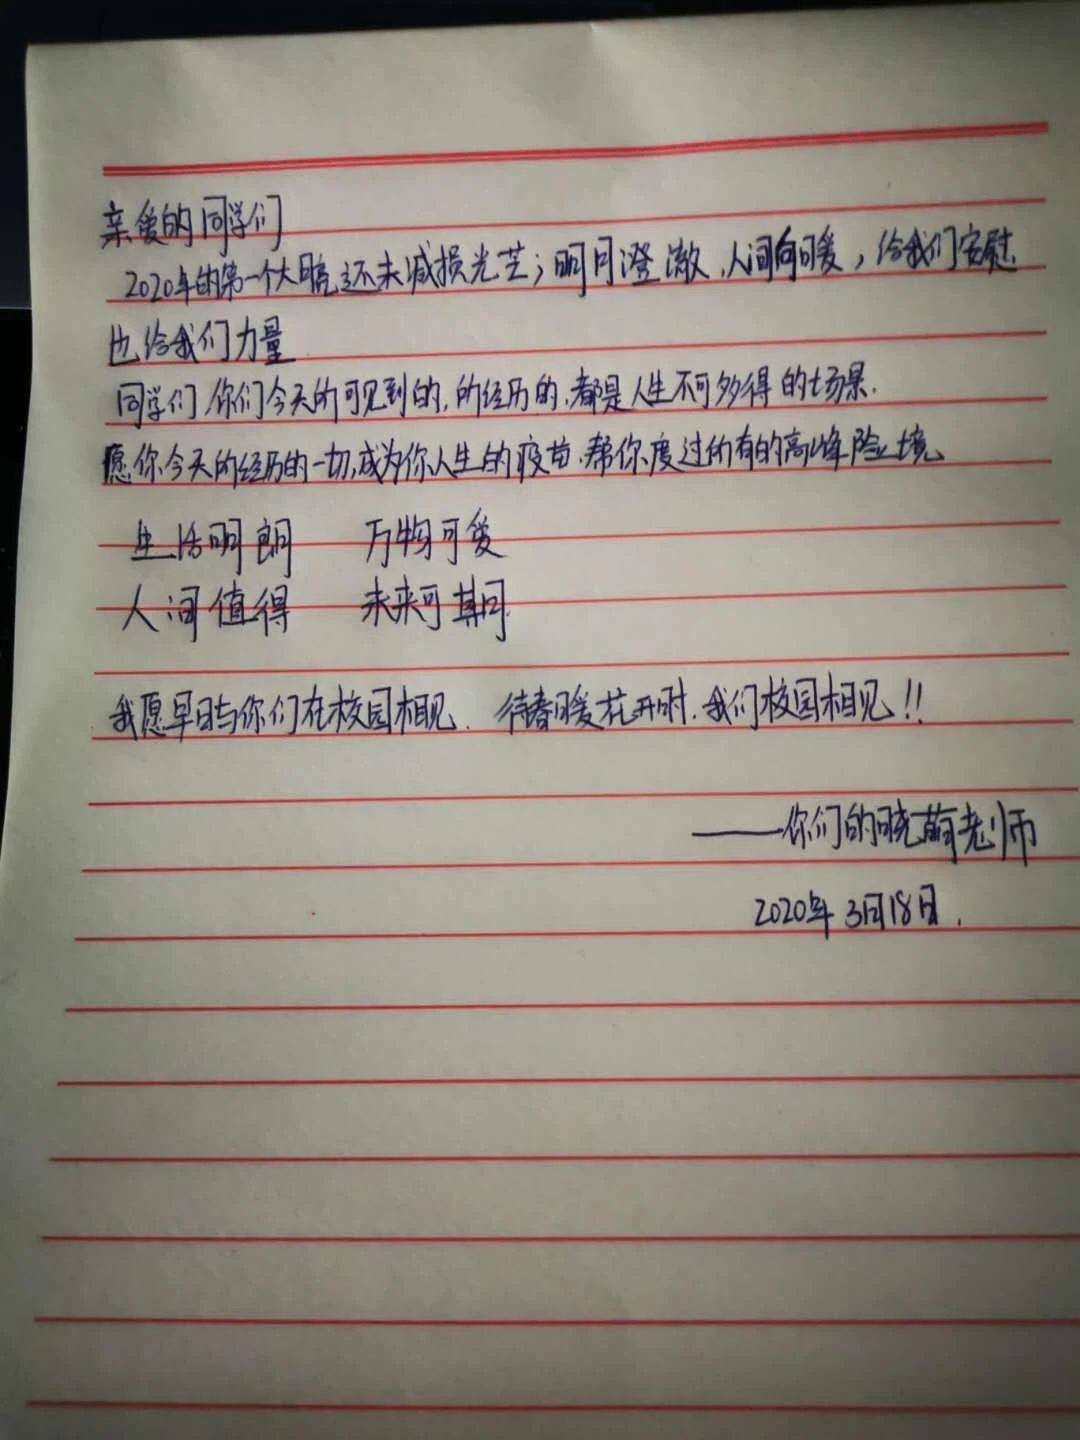 亲爱的同学们
2020年的第一个大晴还未减损光芒；明月澄澈，人间向暖，给我们安慰.
也给我们力量
同学们 你们今天所可见到的,所经历的,都是人生不可多得的场景.
愿你今天所经历的一切,成为你人生的疫苗,帮你度过所有的高峰险境
生活明朗 万物可爱
人间值得 未来可期
我愿早日与你们在校园相见. 待春暖花开时,我们校园相见!!
——你们的晓萌老师
2020年3月18日.